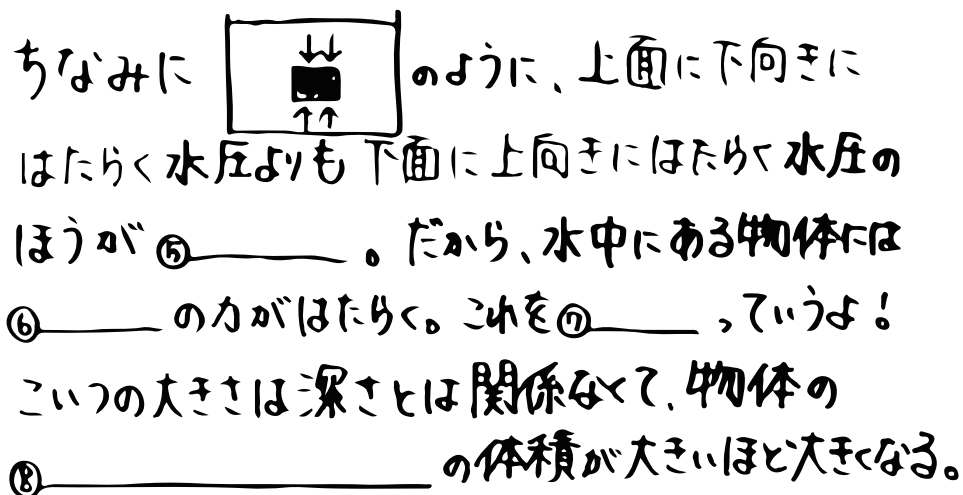 ちなみに のように、上面に下向きに
はたらく水圧よりも下面に上向きにはたらく水圧の
ほうが⑤______。だから、水中にある物体には
⑥______の力がはたらく。これを⑦______っていうよ！
こいつの大きさは深さとは関係なくて、物体の
⑧______の体積が大きいほど大きくなる。